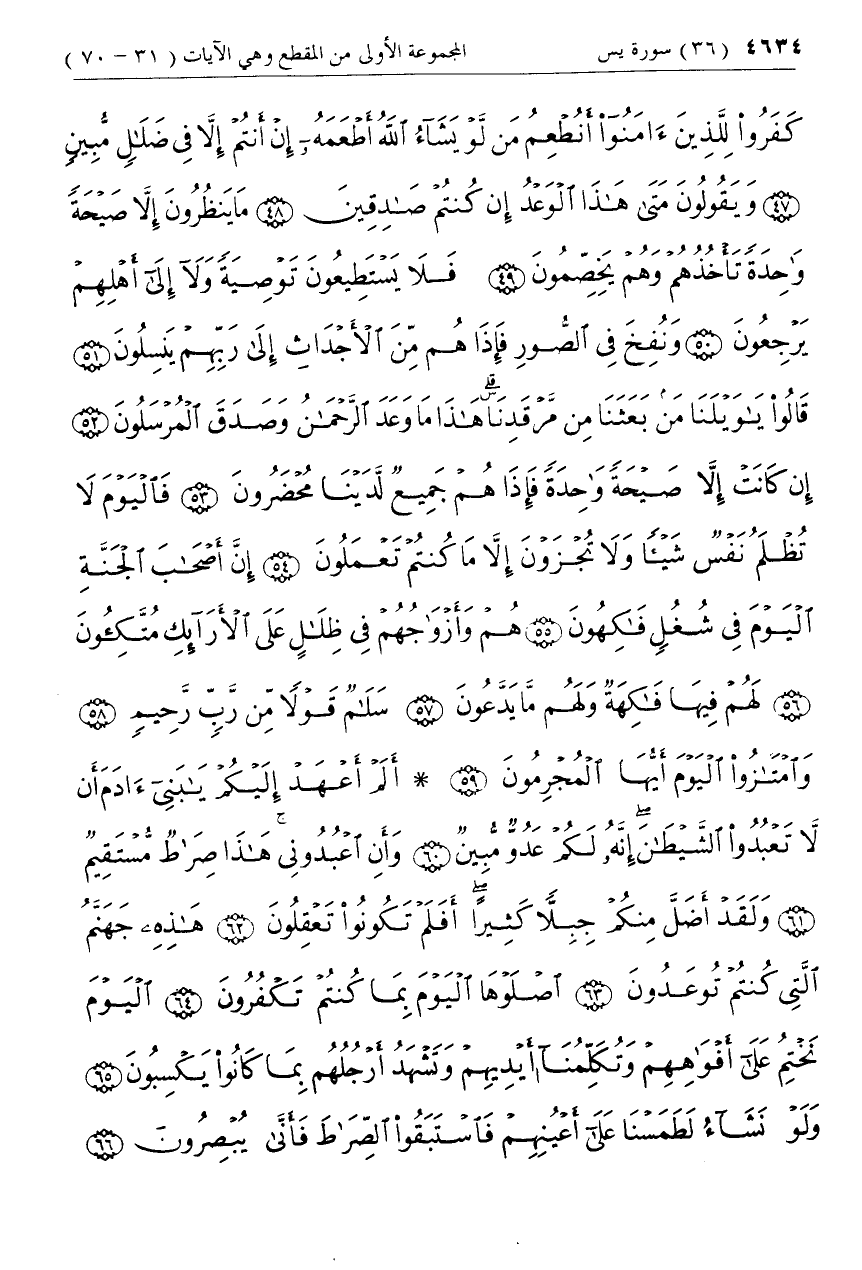 ٤٦٣٤ (٣٦) سورة يس المجموعة الأولى من المقطع وهي الآيات ( ٣١ - ٧٠ )
كَفَرُوا۟ لِلَّذِينَ ءَامَنُوٓا۟ أَنُطْعِمُ مَن لَّوْ يَشَآءُ ٱللَّهُ أَطْعَمَهُۥٓ إِنْ أَنتُمْ إِلَّا فِى ضَلَٰلٍ مُّبِينٍ
﴿٤٧﴾ وَيَقُولُونَ مَتَىٰ هَٰذَا ٱلْوَعْدُ إِن كُنتُمْ صَٰدِقِينَ ﴿٤٨﴾ مَا يَنظُرُونَ إِلَّا صَيْحَةً
وَٰحِدَةً تَأْخُذُهُمْ وَهُمْ يَخِصِّمُونَ ﴿٤٩﴾ فَلَا يَسْتَطِيعُونَ تَوْصِيَةً وَلَآ إِلَىٰٓ أَهْلِهِمْ
يَرْجِعُونَ ﴿٥٠﴾ وَنُفِخَ فِى ٱلصُّورِ فَإِذَا هُم مِّنَ ٱلْأَجْدَاثِ إِلَىٰ رَبِّهِمْ يَنسِلُونَ ﴿٥١﴾
قَالُوا۟ يَٰوَيْلَنَا مَنۢ بَعَثَنَا مِن مَّرْقَدِنَا ۗ هَٰذَا مَا وَعَدَ ٱلرَّحْمَٰنُ وَصَدَقَ ٱلْمُرْسَلُونَ ﴿٥٢﴾
إِن كَانَتْ إِلَّا صَيْحَةً وَٰحِدَةً فَإِذَا هُمْ جَمِيعٌ لَّدَيْنَا مُحْضَرُونَ ﴿٥٣﴾ فَٱلْيَوْمَ لَا
تُظْلَمُ نَفْسٌ شَيْـًٔا وَلَا تُجْزَوْنَ إِلَّا مَا كُنتُمْ تَعْمَلُونَ ﴿٥٤﴾ إِنَّ أَصْحَٰبَ ٱلْجَنَّةِ
ٱلْيَوْمَ فِى شُغُلٍ فَٰكِهُونَ ﴿٥٥﴾ هُمْ وَأَزْوَٰجُهُمْ فِى ظِلَٰلٍ عَلَى ٱلْأَرَآئِكِ مُتَّكِـُٔونَ
﴿٥٦﴾ لَهُمْ فِيهَا فَٰكِهَةٌ وَلَهُم مَّا يَدَّعُونَ ﴿٥٧﴾ سَلَٰمٌ قَوْلًا مِّن رَّبٍّ رَّحِيمٍ ﴿٥٨﴾
وَٱمْتَٰزُوا۟ ٱلْيَوْمَ أَيُّهَا ٱلْمُجْرِمُونَ ﴿٥٩﴾ * أَلَمْ أَعْهَدْ إِلَيْكُمْ يَٰبَنِىٓ ءَادَمَ أَن
لَّا تَعْبُدُوا۟ ٱلشَّيْطَٰنَ ۖ إِنَّهُۥ لَكُمْ عَدُوٌّ مُّبِينٌ ﴿٦٠﴾ وَأَنِ ٱعْبُدُونِى ۚ هَٰذَا صِرَٰطٌ مُّسْتَقِيمٌ
﴿٦١﴾ وَلَقَدْ أَضَلَّ مِنكُمْ جِبِلًّا كَثِيرًا ۖ أَفَلَمْ تَكُونُوا۟ تَعْقِلُونَ ﴿٦٢﴾ هَٰذِهِۦ جَهَنَّمُ
ٱلَّتِى كُنتُمْ تُوعَدُونَ ﴿٦٣﴾ ٱصْلَوْهَا ٱلْيَوْمَ بِمَا كُنتُمْ تَكْفُرُونَ ﴿٦٤﴾ ٱلْيَوْمَ
نَخْتِمُ عَلَىٰٓ أَفْوَٰهِهِمْ وَتُكَلِّمُنَآ أَيْدِيهِمْ وَتَشْهَدُ أَرْجُلُهُم بِمَا كَانُوا۟ يَكْسِبُونَ ﴿٦٥﴾
وَلَوْ نَشَآءُ لَطَمَسْنَا عَلَىٰٓ أَعْيُنِهِمْ فَٱسْتَبَقُوا۟ ٱلصِّرَٰطَ فَأَنَّىٰ يُبْصِرُونَ ﴿٦٦﴾